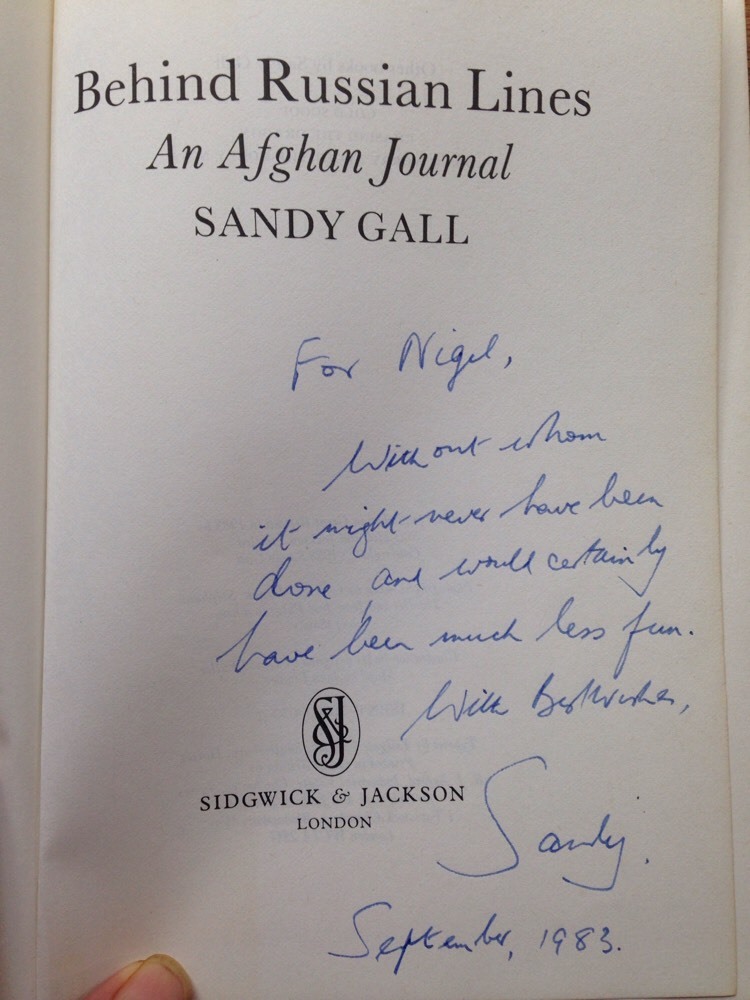 Behind Russian Lines
An Afghan Journal
SANDY GALL
For Nigel,
Without whom
it might never have been
done and would certainly
have been much less fun.
With Best Wishes,
SJ
SIDGWICK & JACKSON
LONDON
Sandy.
September, 1983.